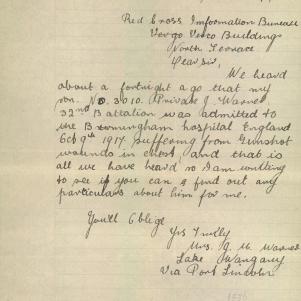 Red Cross Information Bureau
Vergo Verco Buildings
North Terrace
Dear Sir,
We heard
about a fortnight ago that my
son. No 3010. Private J. Warner
32nd Battalion was admitted to
the Birmingham hospital England
Oct 9th 1917, suffering from Gunshot
wounds in chest, and that is
all we have heard so I am writing
to see if you can find out any
particulars about him for me.
You'll Oblige
Yrs Truly
Mrs. J. M. Warner
Lake Wangary
Via Port Lincoln